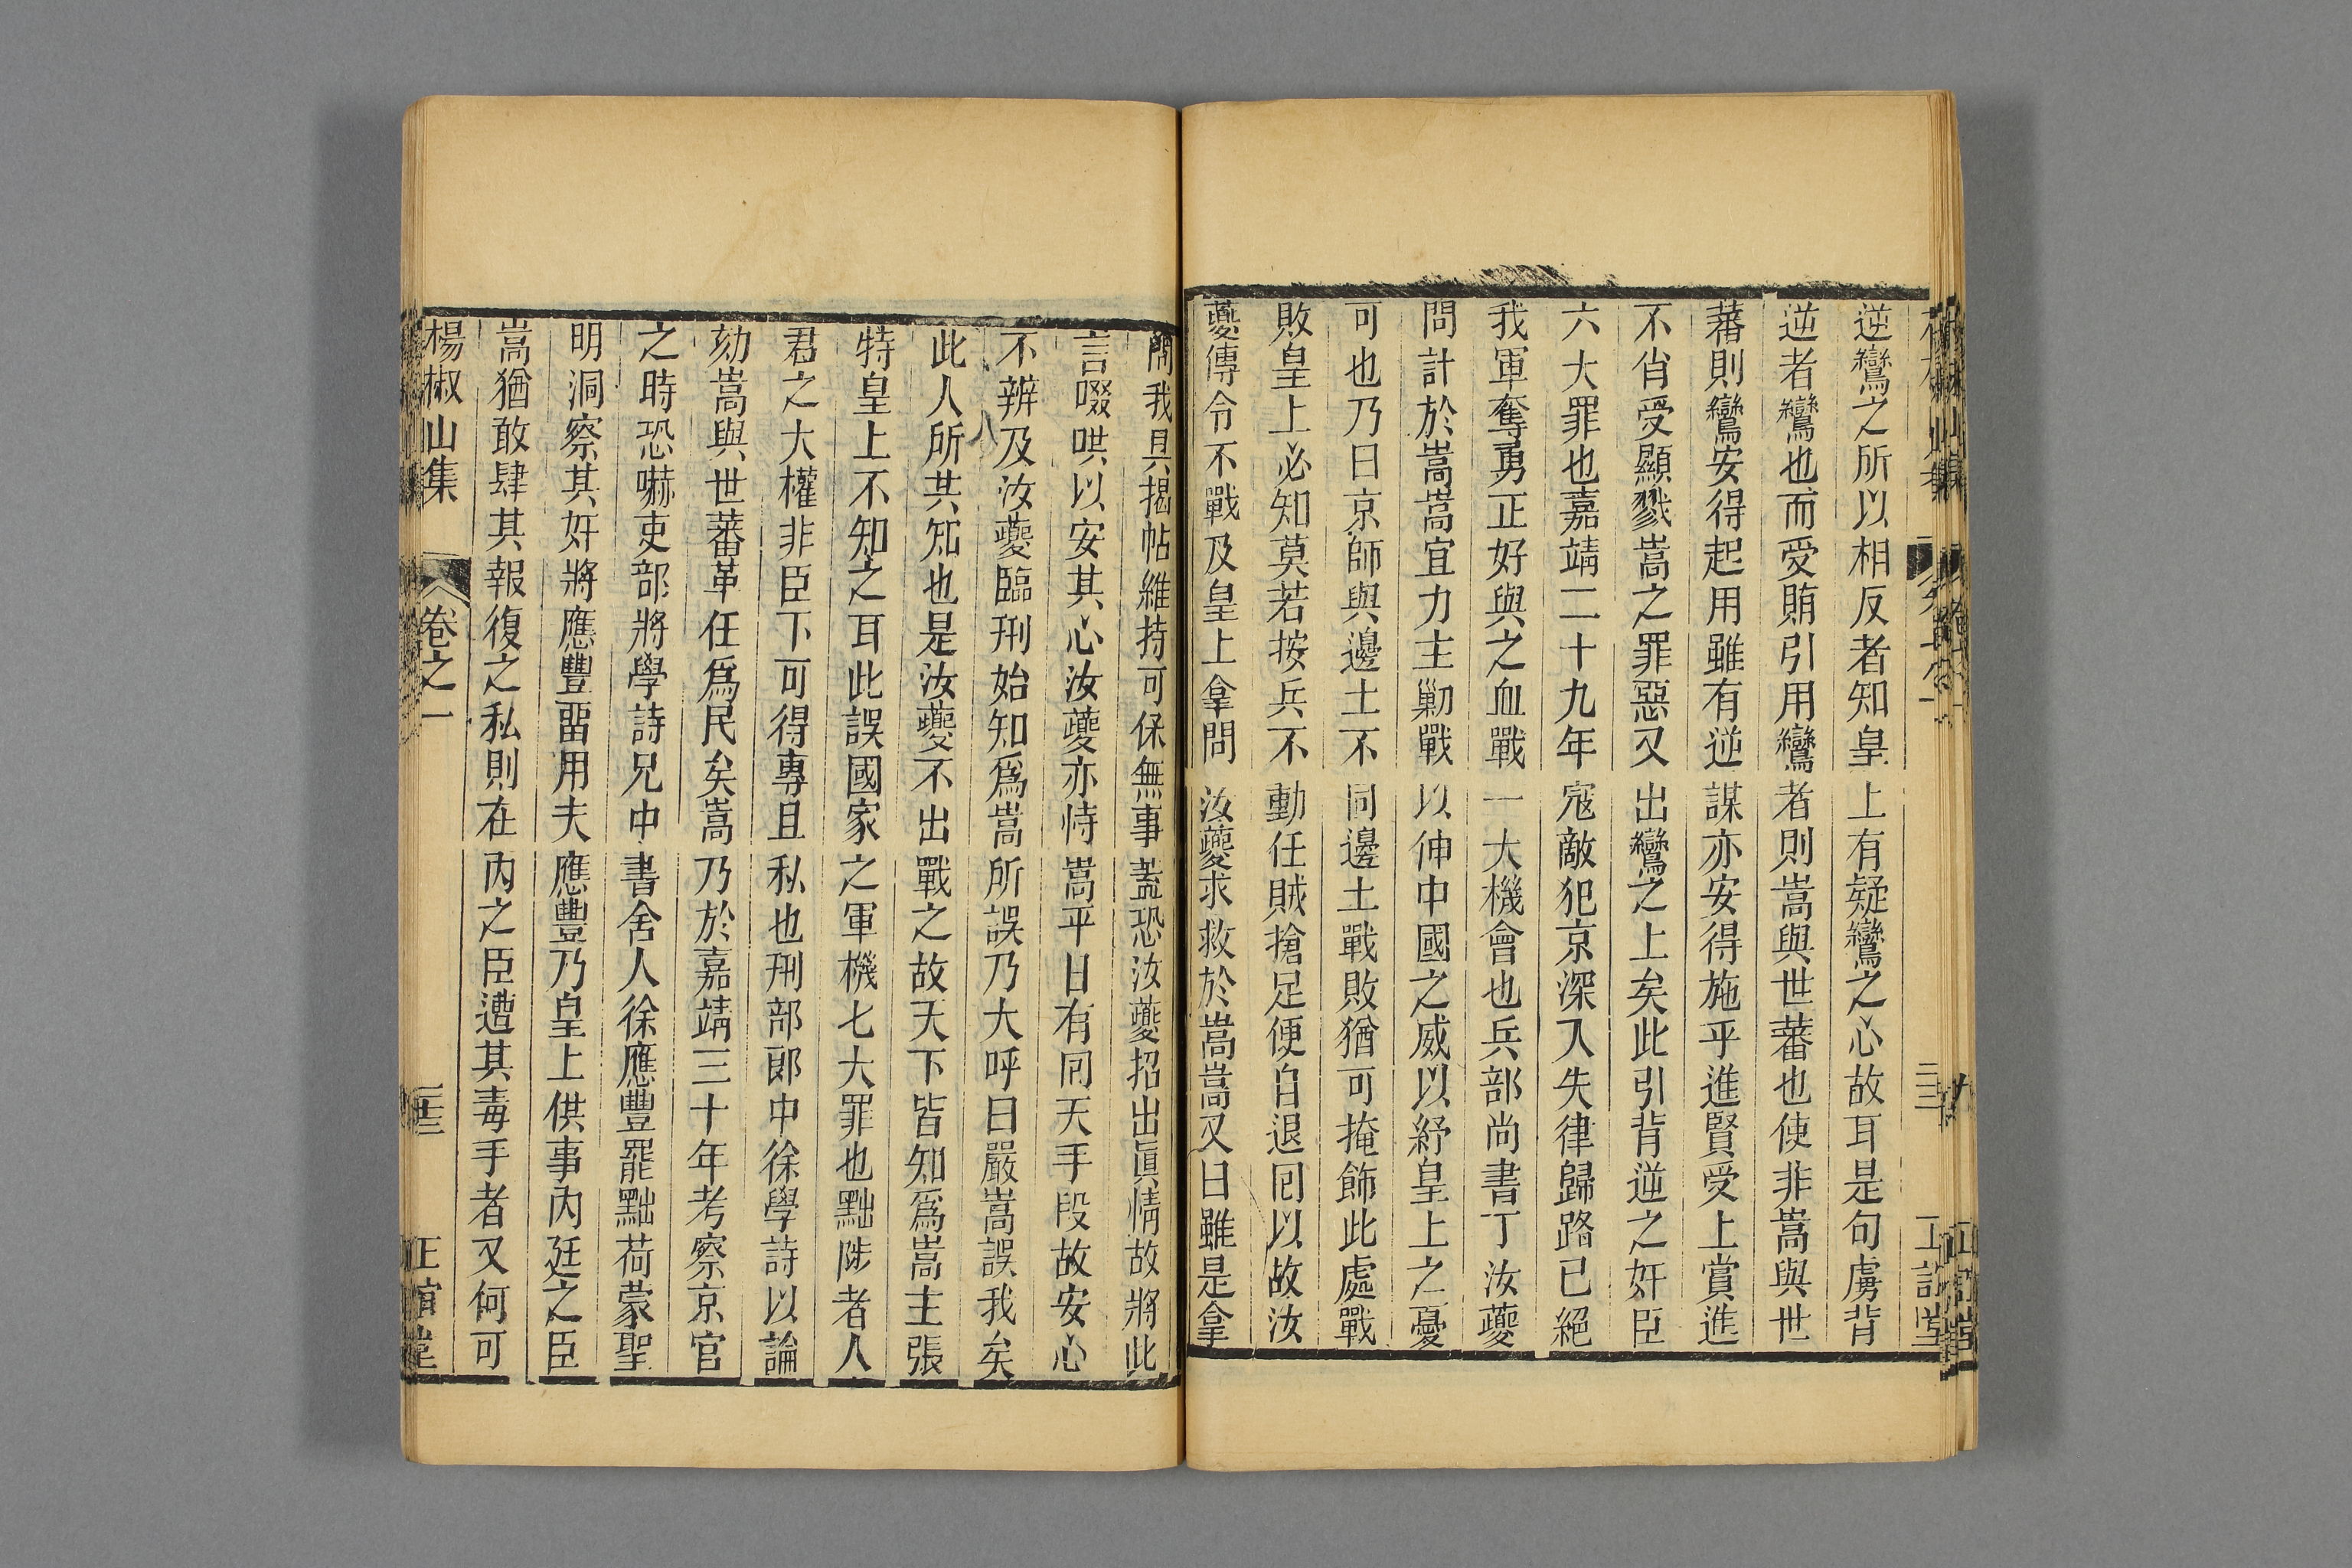 逆鸞之所以相反者知皇上有疑鸞之心故耳是句虜背
逆者鸞也而受賄引用鸞者則嵩與世蕃也使非嵩與世
蕃則鸞安得起用雖有逆謀亦安得施乎進賢受上賞進
不肖受顯戮嵩之罪惡又出鸞之上矣此引背逆之奸臣
六大罪也嘉靖二十九年寇敵犯京深入失律歸路已絕
我軍奪勇正好與之血戰一大機會也兵部尚書丁汝夔
問計於嵩嵩宜力主勦戰以伸中國之威以紓皇上之憂
可也乃曰京師與邊土不同邊土戰敗猶可掩飾此處戰
敗皇上必知莫若按兵不動任賊搶足便自退囘以故汝
夔傳令不戰及皇上拿問汝夔求救於嵩嵩又曰雖是拿
問我具揭帖維持可保無事蓋恐汝夔招出眞情故將此
言啜哄以安其心汝夔亦恃嵩平日有同天手段故安心
不辨及汝夔臨刑始知爲嵩所誤乃大呼曰嚴嵩誤我矣
此人所共知也是汝夔不出戰之故天下皆知爲嵩主張
特皇上不知之耳此誤國家之軍機七大罪也黜陟者人
君之大權非臣下可得專且私也刑部郎中徐學詩以論
劾嵩與世蕃革任爲民矣嵩乃於嘉靖三十年考察京官
之時恐嚇吏部將學詩兄中書舍人徐應豐罷黜荷蒙聖
明洞察其奸將應豐畱用夫應豐乃皇上供事內廷之臣
嵩猶敢肆其報復之私則在內之臣遭其毒手者又何可
楊椒山集 卷之一 正誼堂